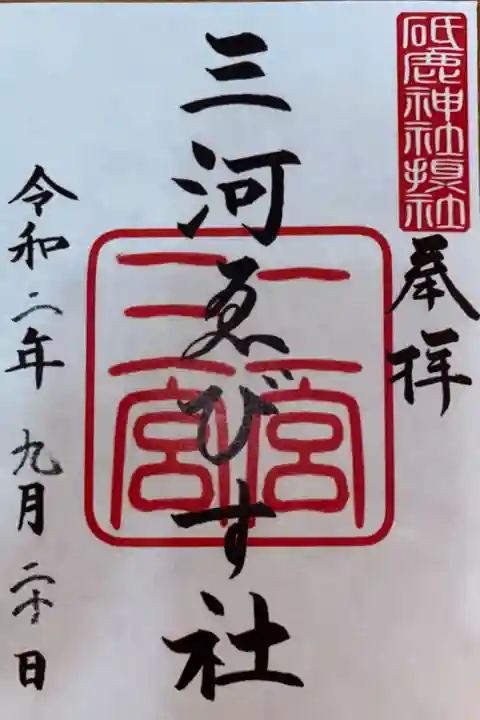 砥鹿神社摂社
奉拝
三河ゑびす社
二宮
三宮
令和二年 九月 二十日